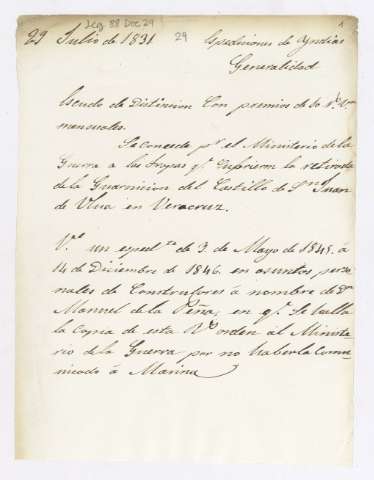 Leg 88 Doc 29
1
29 Julio de 1831
29
Espediciones de Yndias
Generalidad
Escudo de Distincion Con premios de 30 rs. Vn.
mensuales.
Se concede pr. el Ministerio de la
Guerra a las tropas qe. Cubrieron la retirada
de la Guarnicion del Castillo de Sn. Juan
de Ulua en Veracruz.
Ve. un espedte. de 3 de Mayo de 1845. á
14 de Diciembre de 1846. en asuntos perso
nales de Constructores á nombre de Dn.
Manuel de la Peña, en qe. se halla
la Copia de esta Rl. orden al Ministe
rio de la Guerra por no haberla Comu
nicado á Marina